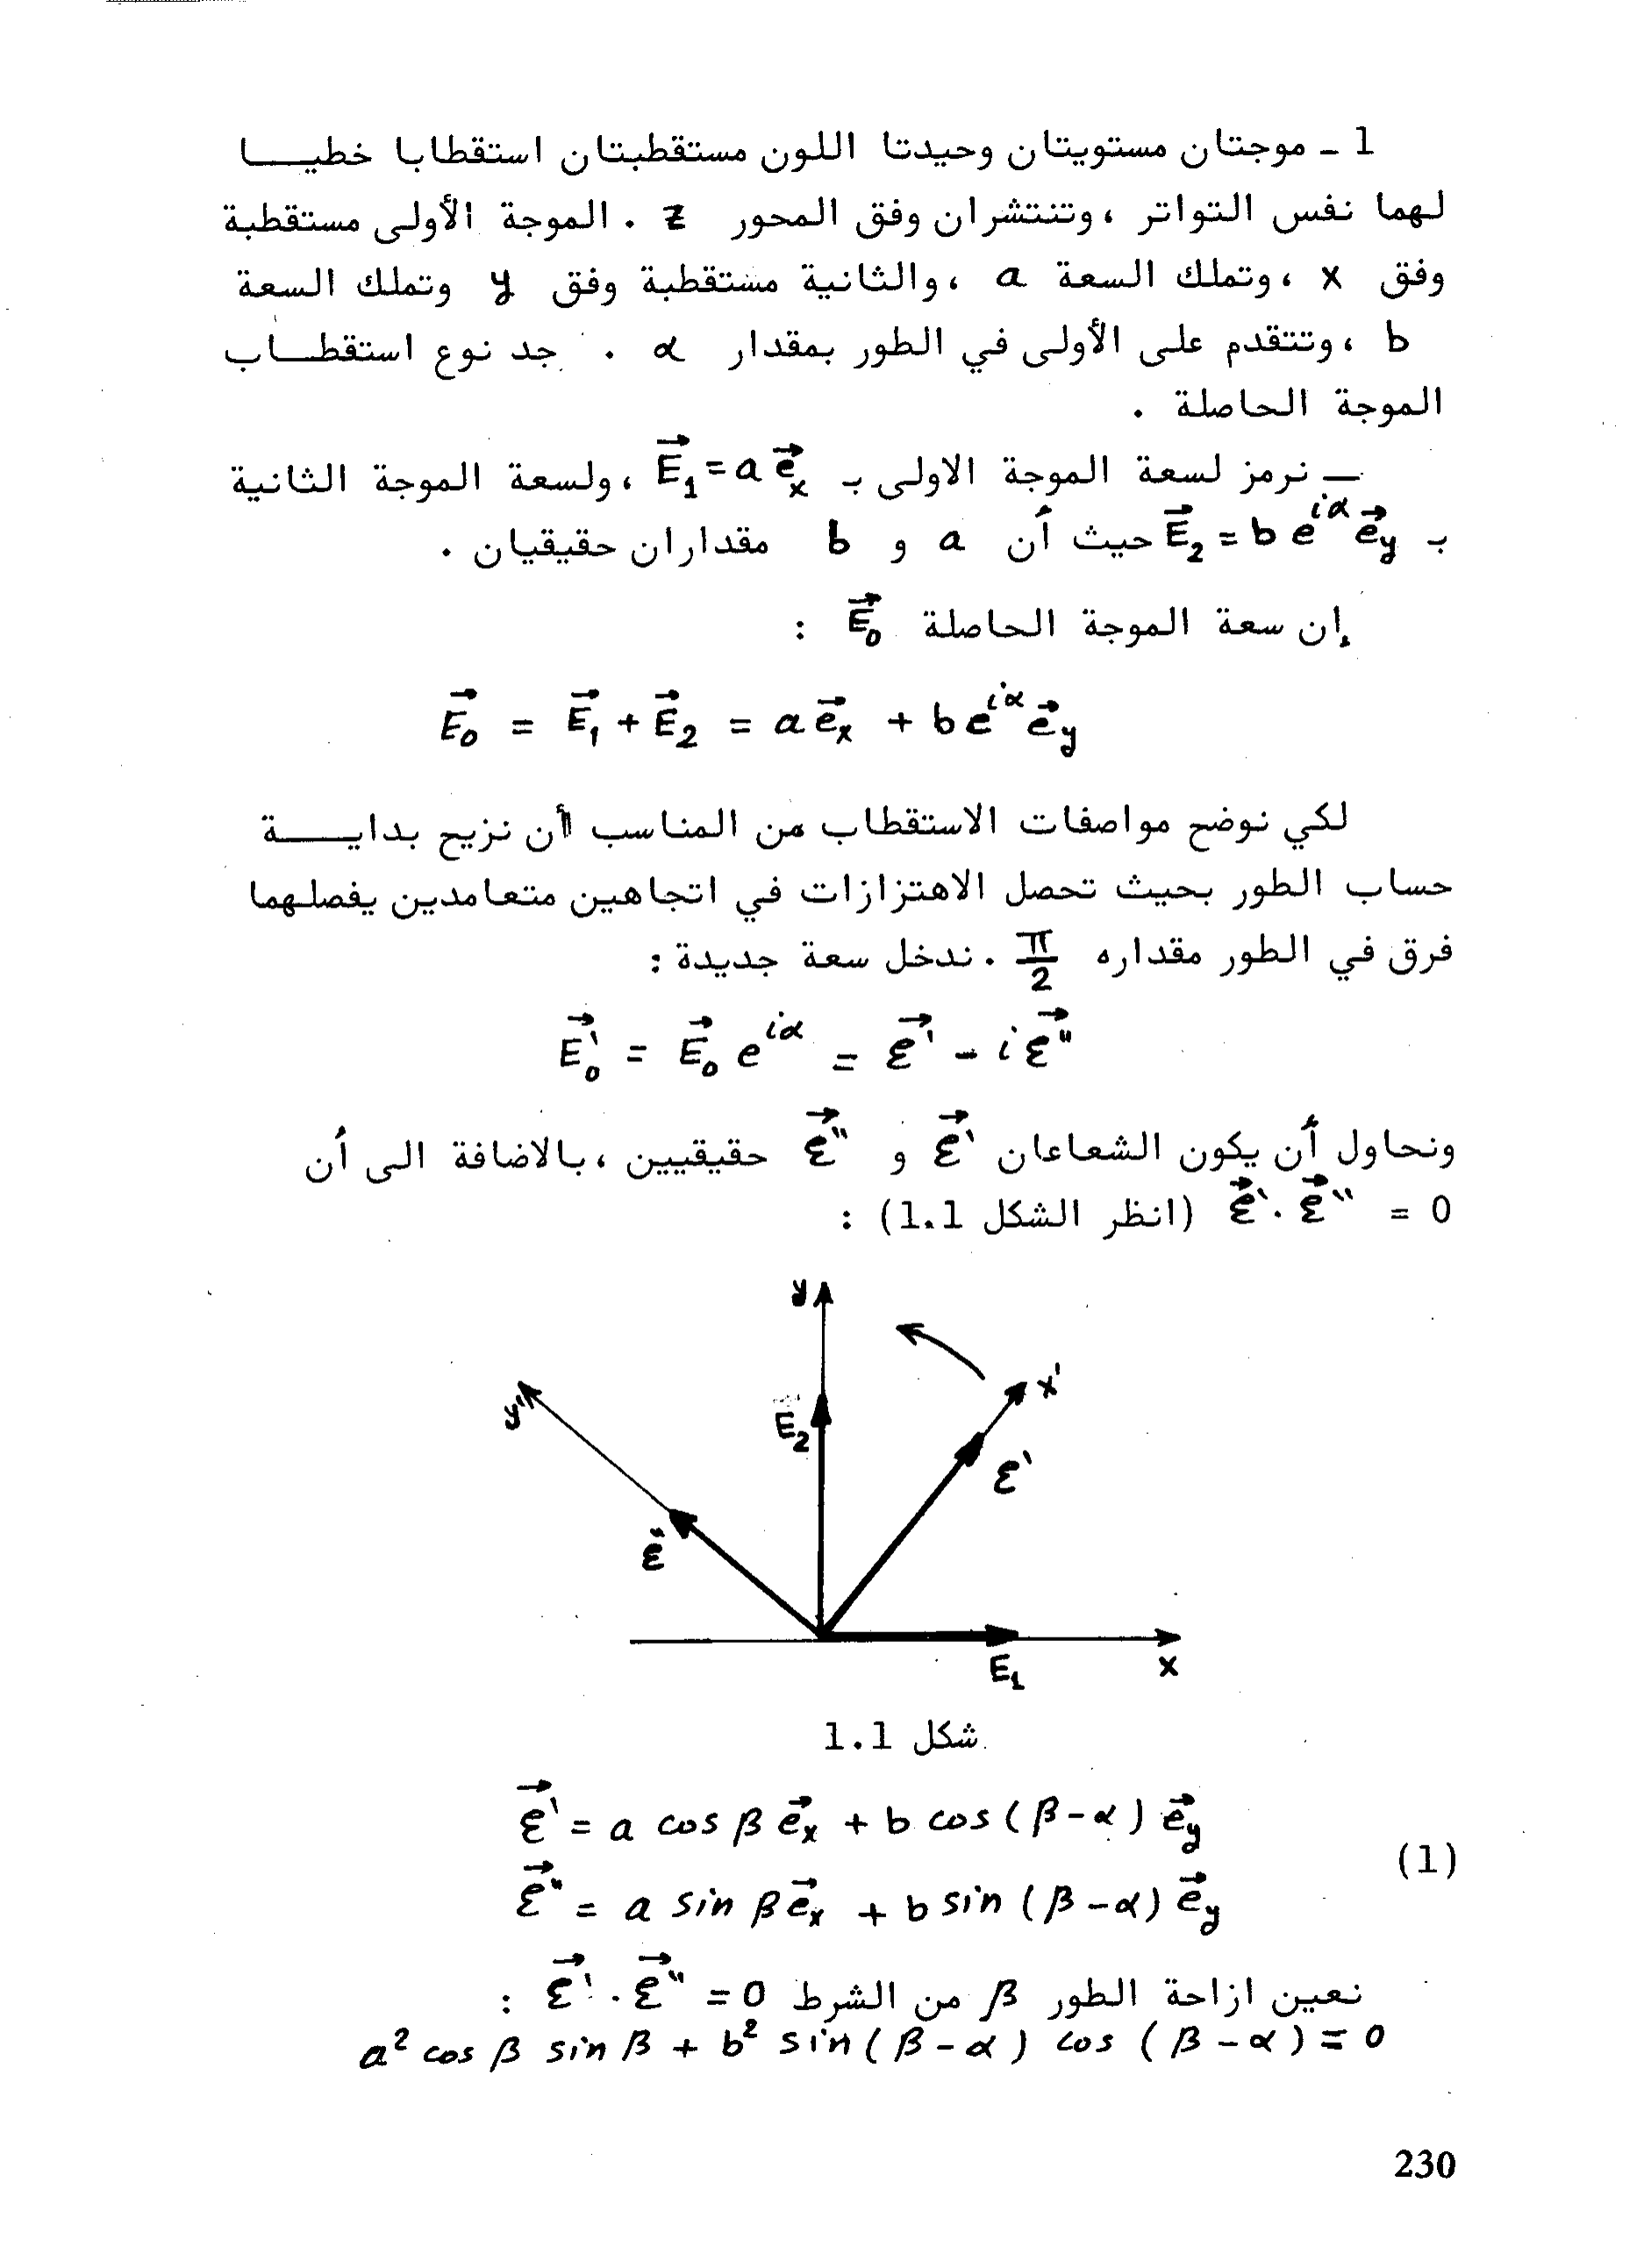 1 ـ موجتان مستويتان وحيدتا اللون مستقطبتان استقطابا خطيـــا
لهما نفس التواتر ، وتنتشران وفق المحور z . الموجة الأولى مستقطبة
وفق x ، وتملك السعة a ، والثانية مستقطبة وفق y وتملك السعة
b ، وتتقدم على الأولى في الطور بمقدار α . جد نوع استقطـــاب
الموجة الحاصلة .
— نرمز لسعة الموجة الاولى بـ E⃗₁ = a e⃗ₓ ، ولسعة الموجة الثانية
بـ E⃗₂ = b e^{iα} e⃗_y حيث أن a و b مقداران حقيقيان .
إن سعة الموجة الحاصلة E⃗₀ :
E⃗₀ = E⃗₁ + E⃗₂ = a e⃗ₓ + b e^{iα} e⃗_y
لكي نوضح مواصفات الاستقطاب من المناسب أن نزيح بدايـــة
حساب الطور بحيث تحصل الاهتزازات في اتجاهين متعامدين يفصلهما
فرق في الطور مقداره π/2 . ندخل سعة جديدة :
E⃗₀' = E⃗₀ e^{iα} = ε⃗' - i ε⃗"
ونحاول أن يكون الشعاعان ε⃗' و ε⃗" حقيقيين ، بالاضافة الى أن
ε⃗' . ε⃗" = 0 (انظر الشكل 1.1) :
y
x'
y'
E₂
ε'
ε"
E₁
x
شكل 1.1
ε⃗' = a cos β e⃗ₓ + b cos (β-α) e⃗_y
(1)
ε⃗" = a sin β e⃗ₓ + b sin (β-α) e⃗_y
نعين ازاحة الطور β من الشرط ε⃗' . ε⃗" = 0 :
a² cos β sin β + b² sin (β-α) cos (β-α) = 0
230